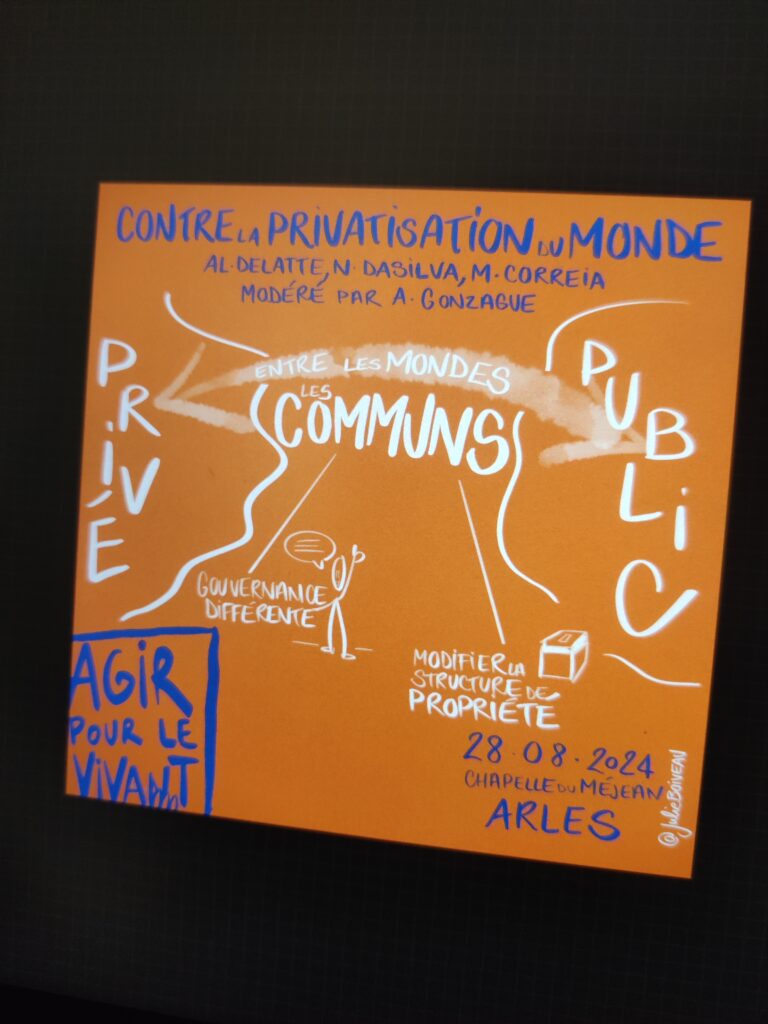 CONTRE LA PRIVATISATION DU MONDE
AL·DELATTE, N·DASILVA, M·CORREIA
MODÉRÉ PAR A·GONZAGUE
PRIVÉ
ENTRE LES MONDES
LES
COMMUNS
PUBLIC
GOUVERNANCE
DIFFÉRENTE
MODIFIER LA
STRUCTURE DE
PROPRIÉTÉ
AGIR
POUR LE
VIVANT
28·08·2024
CHAPELLE DU MÉJEAN
ARLES
@JulieBoiveau